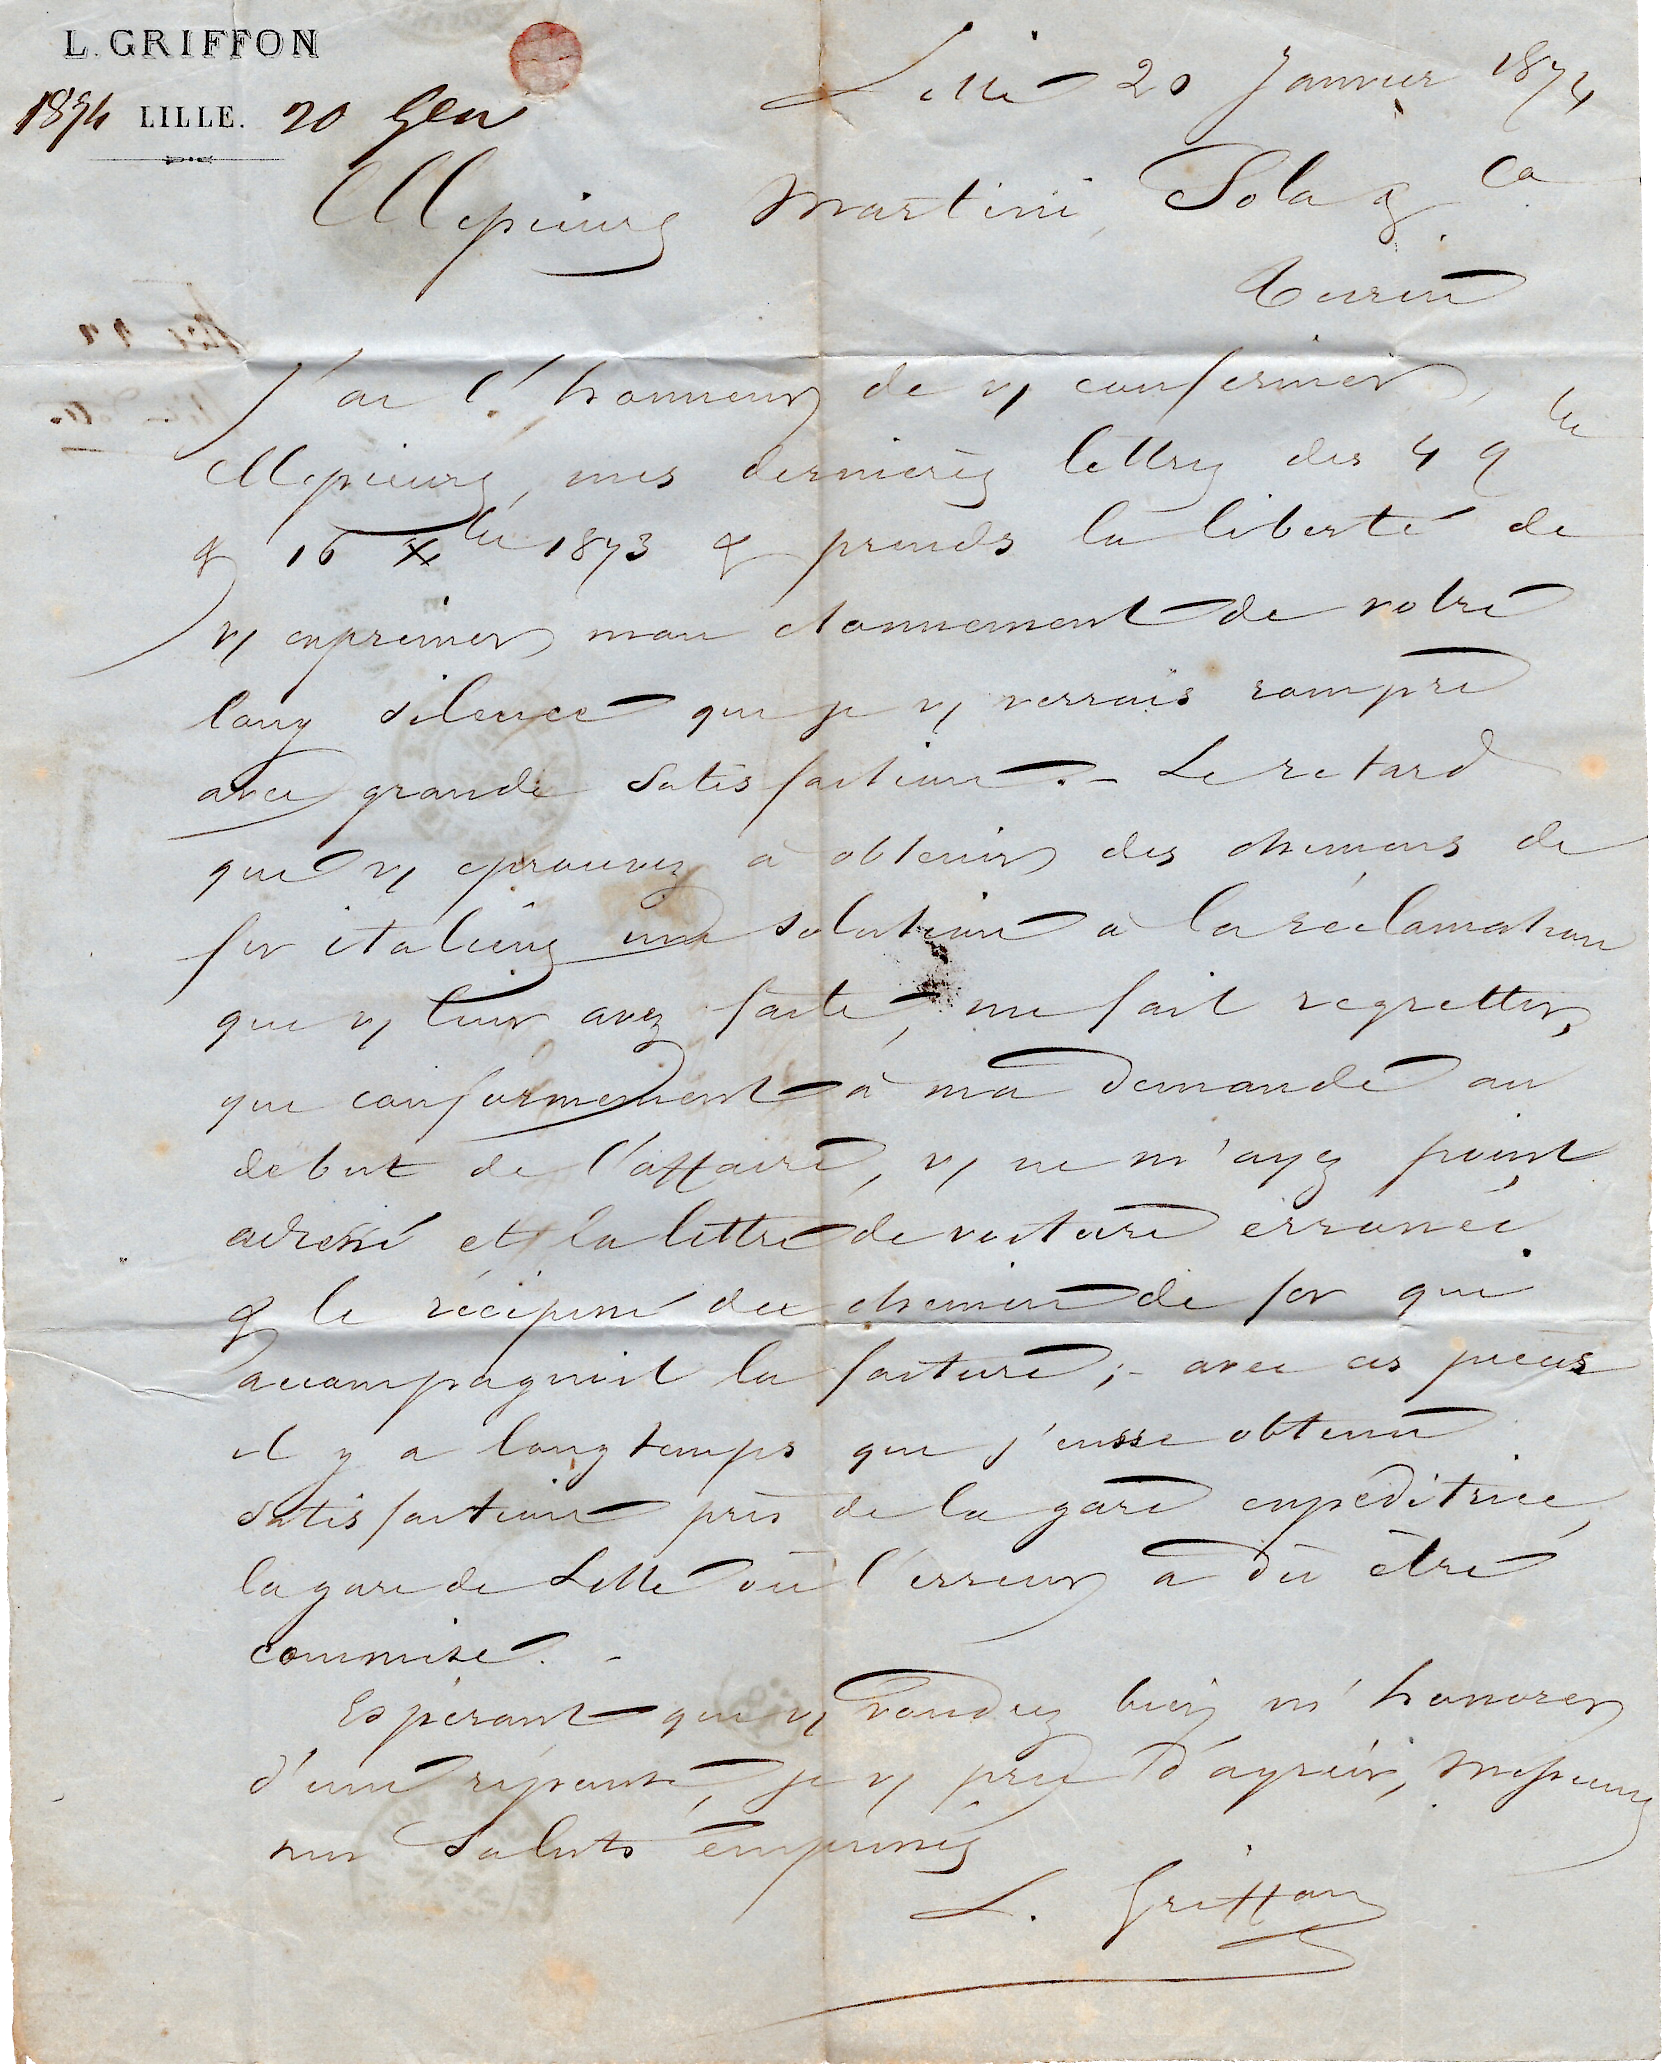 L. GRIFFON
1874 LILLE. 20 Gen
Lille 20 Janvier 1874
Messieurs Martini, Sola & Ca
Turin
J'ai l'honneur de vs confirmer,
Messieurs, mes dernières lettres des 4 9bre
& 16 Xbre 1873 & prends la liberté de
vs exprimer mon etonnement de votre
long silence que je vs verrais rompre
avec grande satisfaction. - Le retard
que vs eprouvez à obtenir des chemins de
fer italiens une solution à la réclamation
que vs leur avez faite, me fait regretter,
que conformement à ma demande au
debut de l'affaire, vs ne m'ayez point
adressé et la lettre de voiture erronée
& le récépissé du chemin de fer qui
accompagnait la facture ; - avec ces pièces
il y a longtemps que j'eusse obtenu
satisfaction près de la gare expéditrice,
la gare de Lille où l'erreur a dû être
commise. -
Espérant que vs voudrez bien m'honorer
d'une réponse, je vs prie d'agréer, Messieurs
mes saluts empressés
L. Griffon